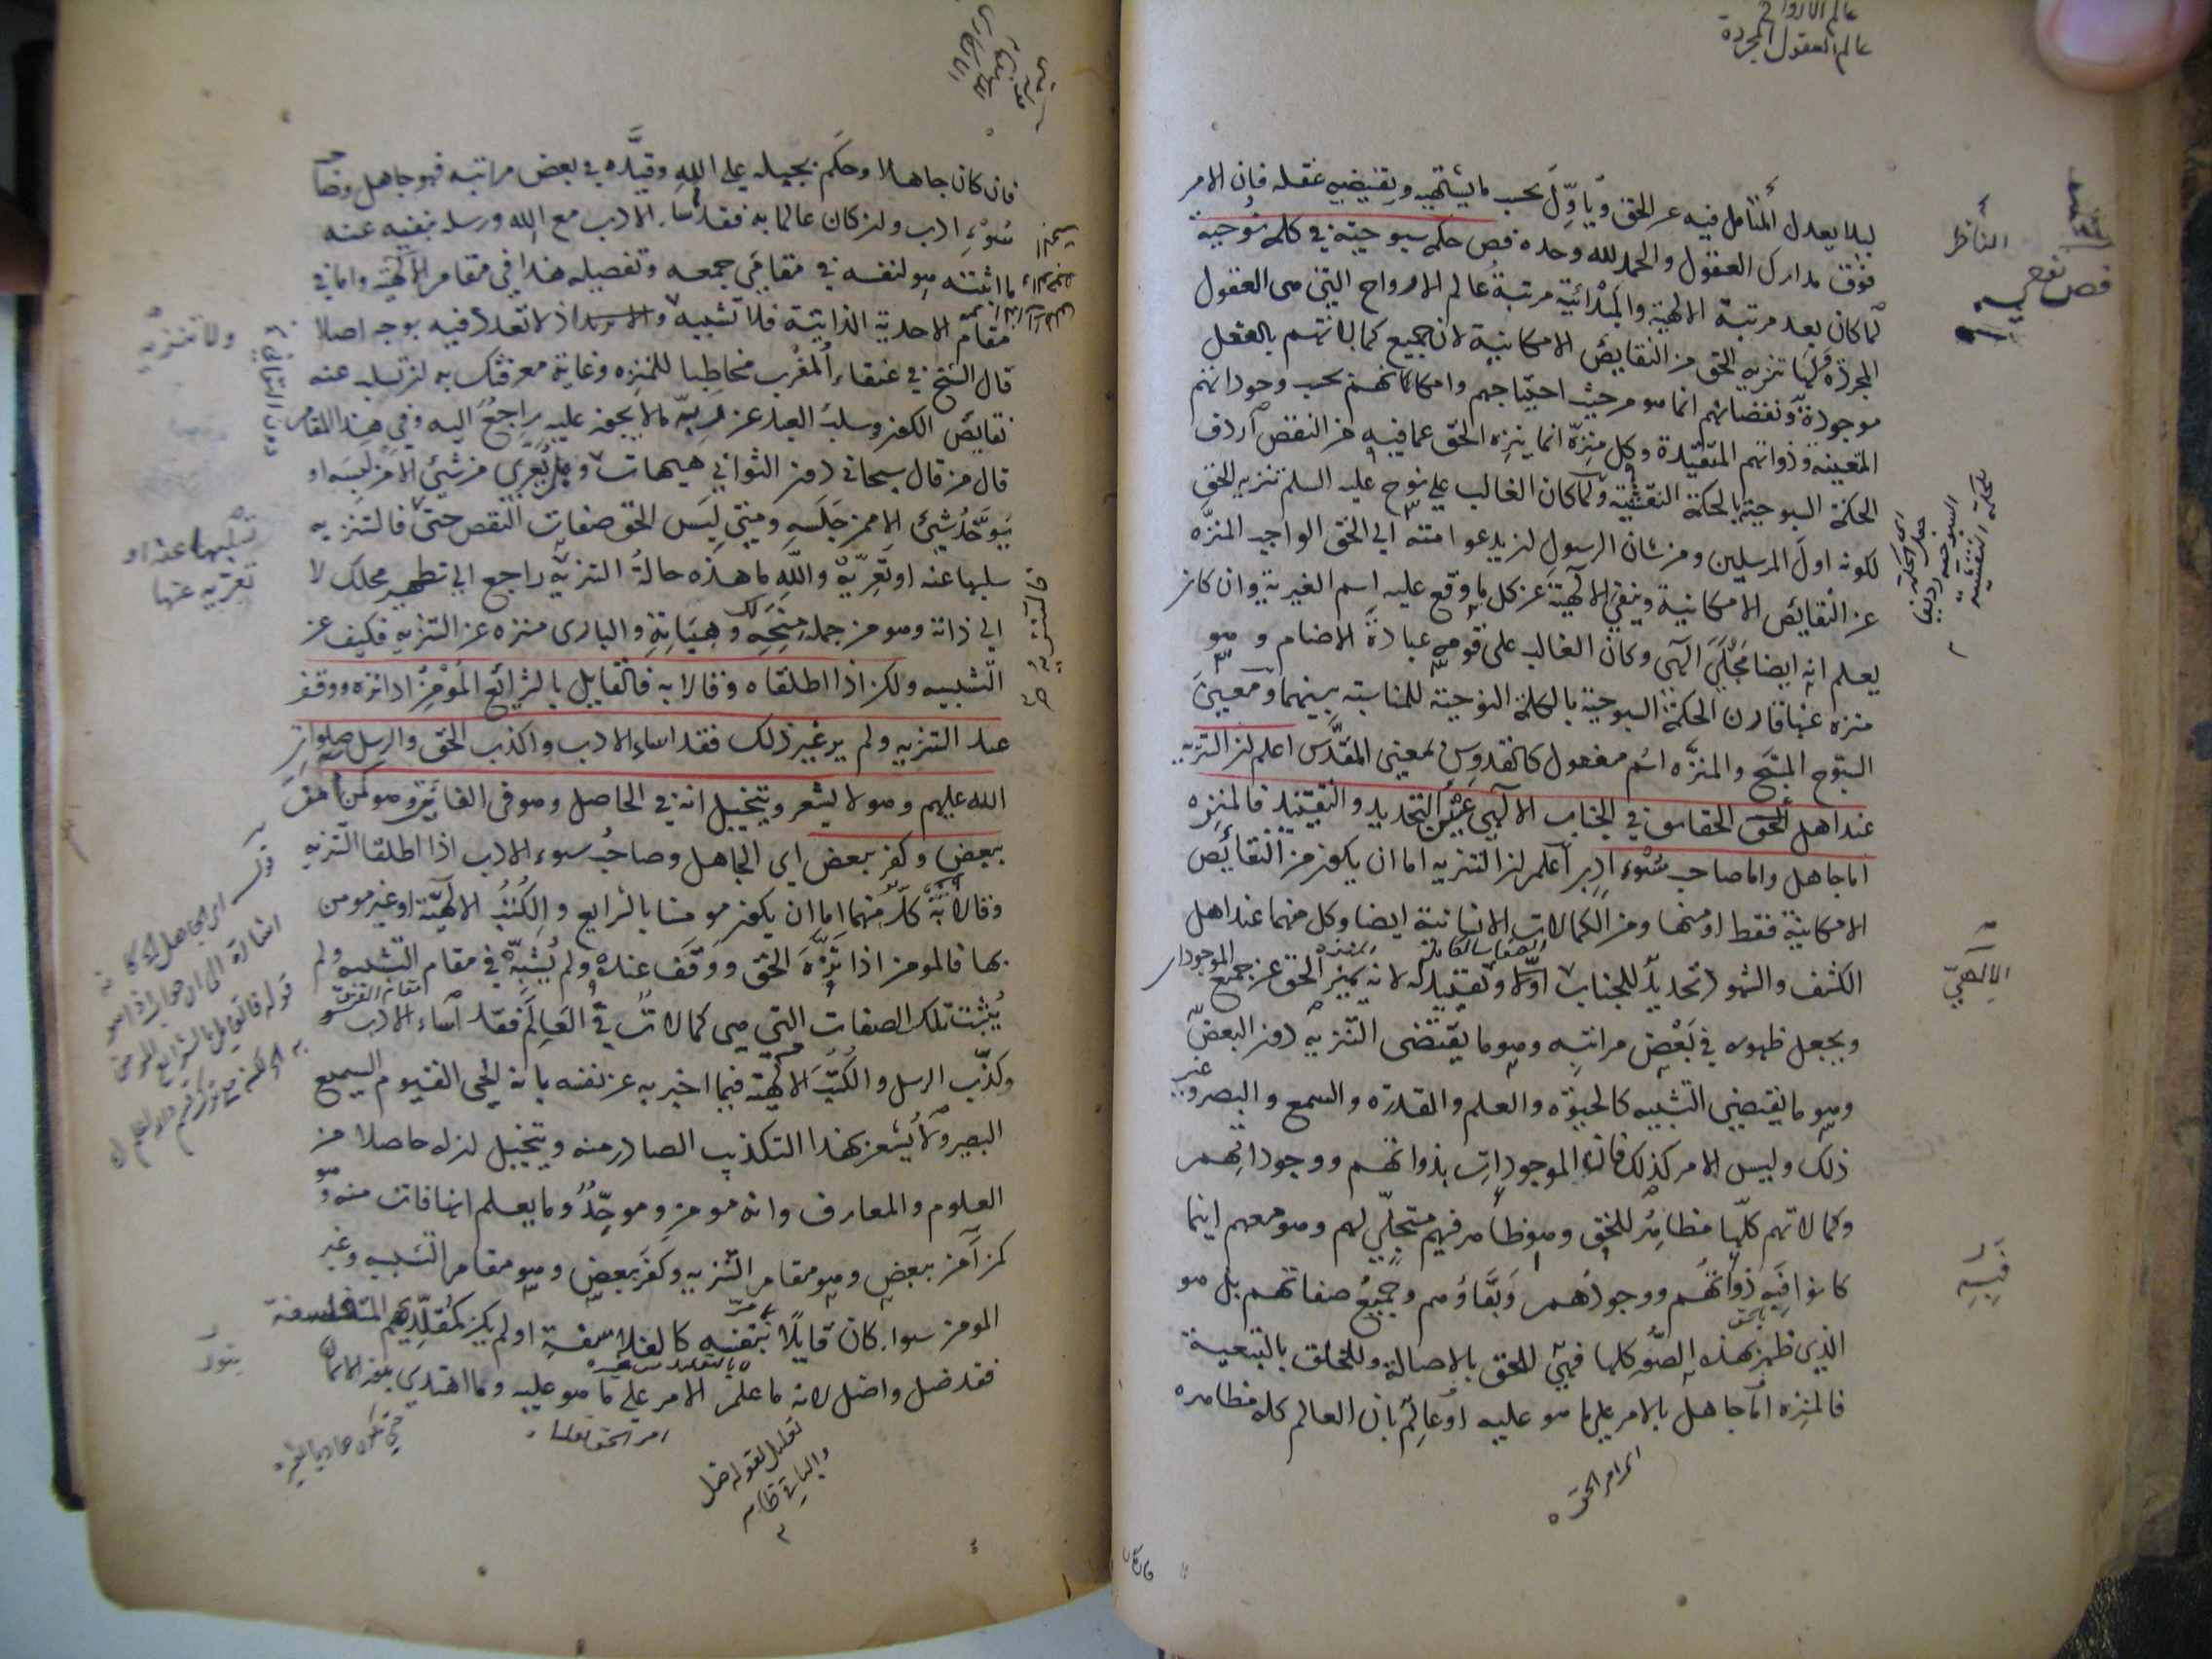 عالم الارواح
عالم العقول المجردة
ليلا يعدل المتأمل فيه عن الحق ويأوّل بحسب ما يشتهيه ويقتضيه عقله فان الامر
فوق مدارك العقول والحمد لله وحده فص حكمه سبوحية في كلمه نوحية
لمّا كان بعد مرتبة الالهية والمبدائية مرتبة عالم الارواح التي هى العقول
المجردة تنزيه الحق من النقايص الامكانية لان جميع كمالاتهم بالفعل
موجودة ونقصانهم انما هو من حيث احتياجهم وامكاناتهم بحسب وجوداتهم
المتعينه وذواتهم المتقيّدة وكل منزّه انما ينزه الحق عما فيه من النقص أردف
الحكمة السبوحية بالحكمة النفثية ولمّا كان الغالب على نوح عليه السلم تنزيه الحق
لكونه اول المرسلين ومن شان الرسول ان يدعو امته الى الحق الواحد المنزّه
عن النقايص الامكانية وينفى الالهية عن كل ما وقع عليه اسم الغيرية وان كان
يعلم انه ايضا مجلى الهى وكان الغالب على قومه عبادة الاصنام وهو
منزه عنها قارن الحكمة السبوحية بالكلمة النوحية للمناسبة بينهما ومعنى
السبوح المسبّح والمنزّه اسم مفعول كالقدوس بمعنى المقدّس اعلم ان التنزيه
عند اهل الحق الحقايق في الجناب الالهي عين التحديد والتقييد فالمنزه
اما جاهل واما صاحب سوء ادب اعلم ان التنزيه اما ان يكون من النقايص
الامكانية فقط او منها ومن الكمالات الانسانية ايضا وكل منهما عند اهل
الكشف والشهود تحديد للجناب اولا وتقييد له لانه يميز الحق عن جميع الموجودات
ويجعل ظهوره في بعض مراتبه وهو ما يقتضى التنزيه دون البعض
وهو ما يقتضى التشبيه كالحيوة والعلم والقدرة والسمع والبصر وغير
ذلك وليس الامر كذلك فان الموجودات بذواتهم ووجوداتهم
وكمالاتهم كلّها مظاهر للحق وهو ظاهر فيهم متجلّي لهم وهو معهم اينما
كانوا فهي ذواتهم ووجودهم وبقاؤهم وجميع صفاتهم بل هو
الذي ظهر بهذه الصور كلها فهي للحق بالاصالة وللخلق بالتبعية
فالمنزه اما جاهل بالامر على ما هو عليه او عالم بان العالم كله مظاهره
الناظر
فص نوحى
الالهيّ
فان كان جاهلا وحكم بجهله على الله وقيّده في بعض مراتبه فهو جاهل وصاحب
سوء ادب وان كان عالما به فقد اساء الادب مع الله ورسله بنفيه عنه
ما اثبته هو لنفسه في مقامى جمعه وتفصيله هذا في مقام الالهية واما في
مقام الاحدية الذاتية فلا تشبيه اذ لا تعدد فيه بوجه اصلا
قال الشيخ في عنقاء المغرب مخاطبا للمنزه وغاية معرفتك به ان تسلب عنه
نقايص الكون وسلب العبد عن ربّه ما لا يجوز عليه راجع اليه وفي هذا المقام
قال من قال سبحاني دون الثواني هيهات وهل يُعرّى من شئ الا من لبسه او
يؤخذ شئ الا ممن حبسه ومتى لبس الحق صفات النقص حتى فالتنزيه
سلبها عنه او تعرّيه والله ما هذه حالة التنزيه راجع الى تطهير محلك لا
الى ذاته وهو من جمله منحه لك وهباته والبارى منزه عن التنزيه فكيف عن
التشبيه ولكن اذا اطلقاه وقالا به فالقايل بالشرائع المؤمن اذا نزه ووقف
عند التنزيه ولم ير غير ذلك فقد اساء الادب واكذب الحق والرسل صلوات
الله عليهم وهو لا يشعر ويتخيل انه في الحاصل وهو فى الفايت وهو كمن آمن
ببعض وكفر ببعض اي الجاهل وصاحب سوء الادب اذا اطلقا التنزيه
وقالا به كل منهما اما ان يكون مومنا بالشرايع والكتب الالهية او غير مومن
بها فالمومن اذا نزه الحق ووقف عنده ولم يشبه في مقام التشبيه ولم
يثبت تلك الصفات التي هي كمالات في العالم فقد اساء الادب
وكذّب الرسل والكتب الالهية فيما اخبر به عن نفسه بانه الحي القيوم السميع
البصير ولا يشعر بهذا التكذيب الصادر منه ويتخيل ان له حاصلا من
العلوم والمعارف وانه مومن وموحّد وما يعلم انها فات منه وهو
كمن آمن ببعض وهو مقام التنزيه وكفر ببعض وهو مقام التشبيه وغير
المومن سواء كان قايلا بنفسه كالفلاسفة او لم يكن كمقلّديهم المتفلسفة
فقد ضل واضل لانه ما علم الامر على ما هو عليه وما اهتدى بنور الايمان
ولا تنزيه
تسلبها عنه او
تعريه عنها
تعليل لقوله ضل